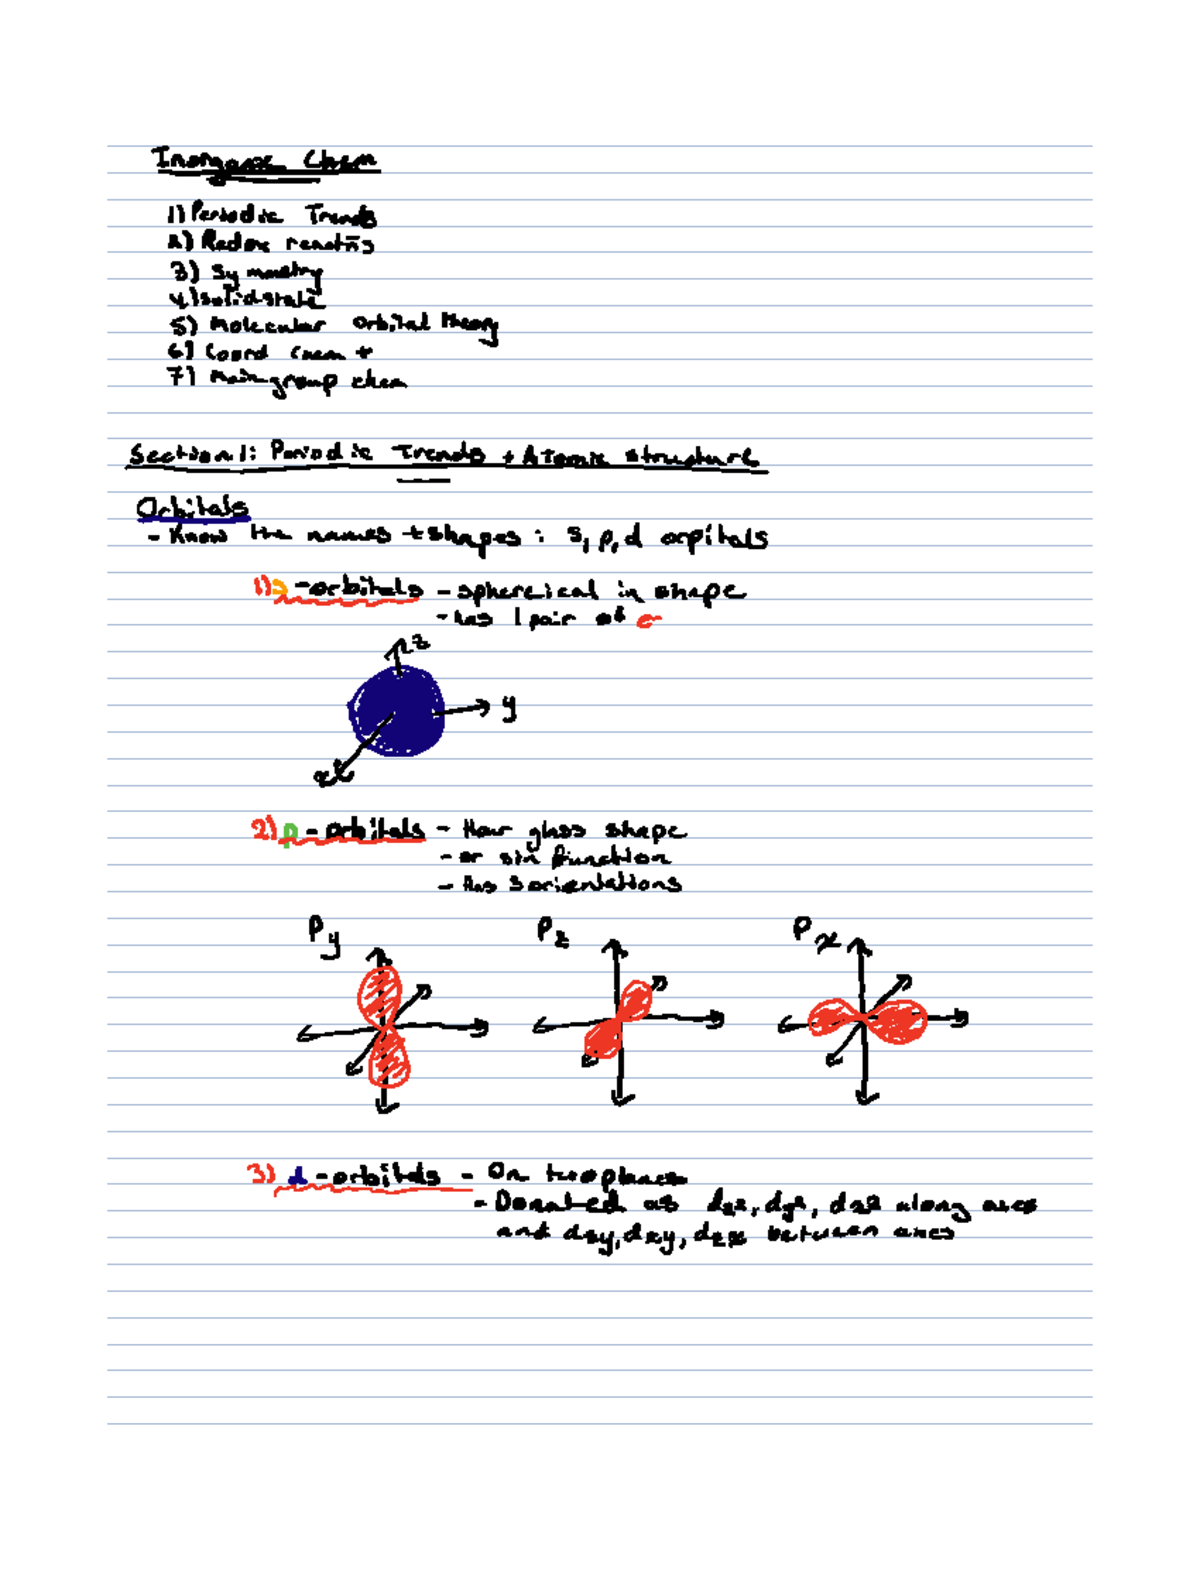 Inorganic Chem
1) Periodic Trends
2) Redox reactīns
3) Symmetry
4) Solid state
5) Molecular orbital theory
6) Coord Chem +
7) Main-group chem
Section 1: Periodic Trends + Atomic structure
Orbitals
- Know the names + shapes : s, p, d orpitals
1) s-orbitals - sphereical in shape
- has 1 pair of e-
z
y
x
2) p-orbitals - Hour glass shape
- or sin function
- Has 3 orientations
Py Pz Px
3) d-orbitals - On two planes
- Donated as along axes
and between axes